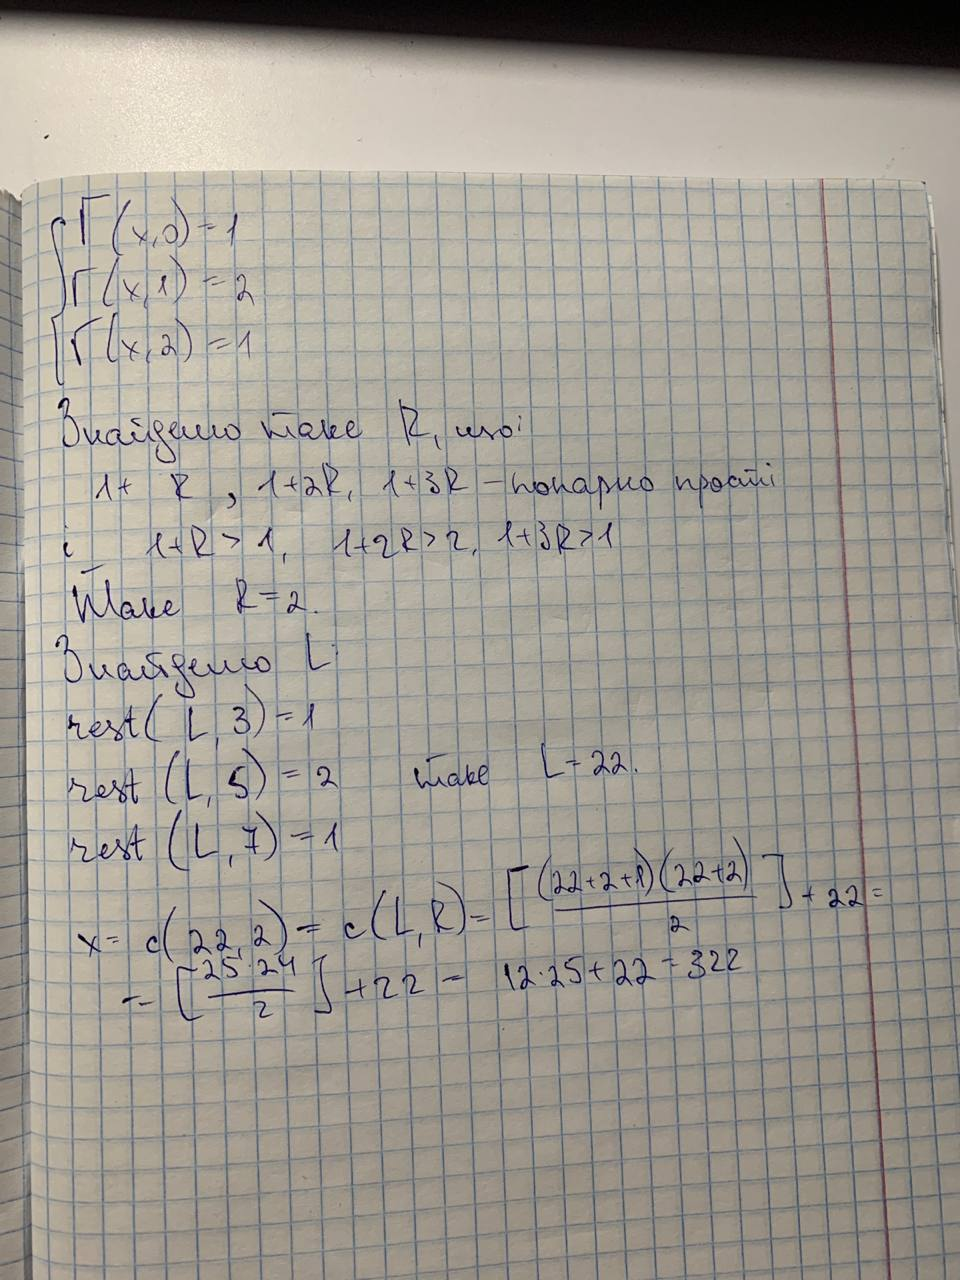 Г(x,0)=1
Г(x,1)=2
Г(x,2)=1
Знайдемо таке R, що:
1+ R, 1+2R, 1+3R - попарно прості
і 1+R>1, 1+2R>2, 1+3R>1
Таке R=2.
Знайдемо L:
rest(L,3)=1
rest(L,5)=2 таке L=22.
rest(L,7)=1
x= c(22,2)= c(L,R)=[(22+2+1)(22+2)/2]+22=
=[25·24/2]+22= 12·25+22=322